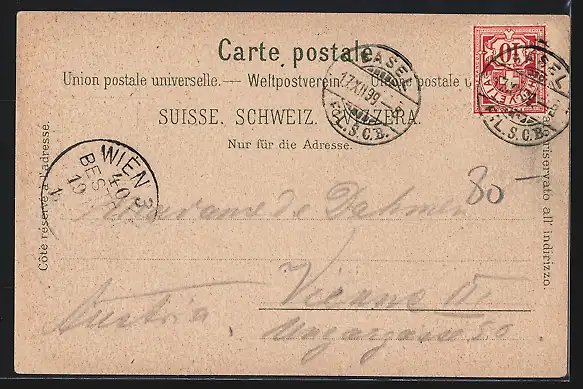 Carte postale.
Union postale universelle. — Weltpostverein. postale u
SUISSE. SCHWEIZ. SVIZZERA.
Nur für die Adresse.
Côté réservé à l'adresse.
riservato all' indirizzo.
BASEL
17.XII.99
L.S.C.B.
10
HELVETIA
WIEN 3
40
BEST
19
80-
Madame de Dahmen
Vienne III.
Ungargasse 50
Austria.